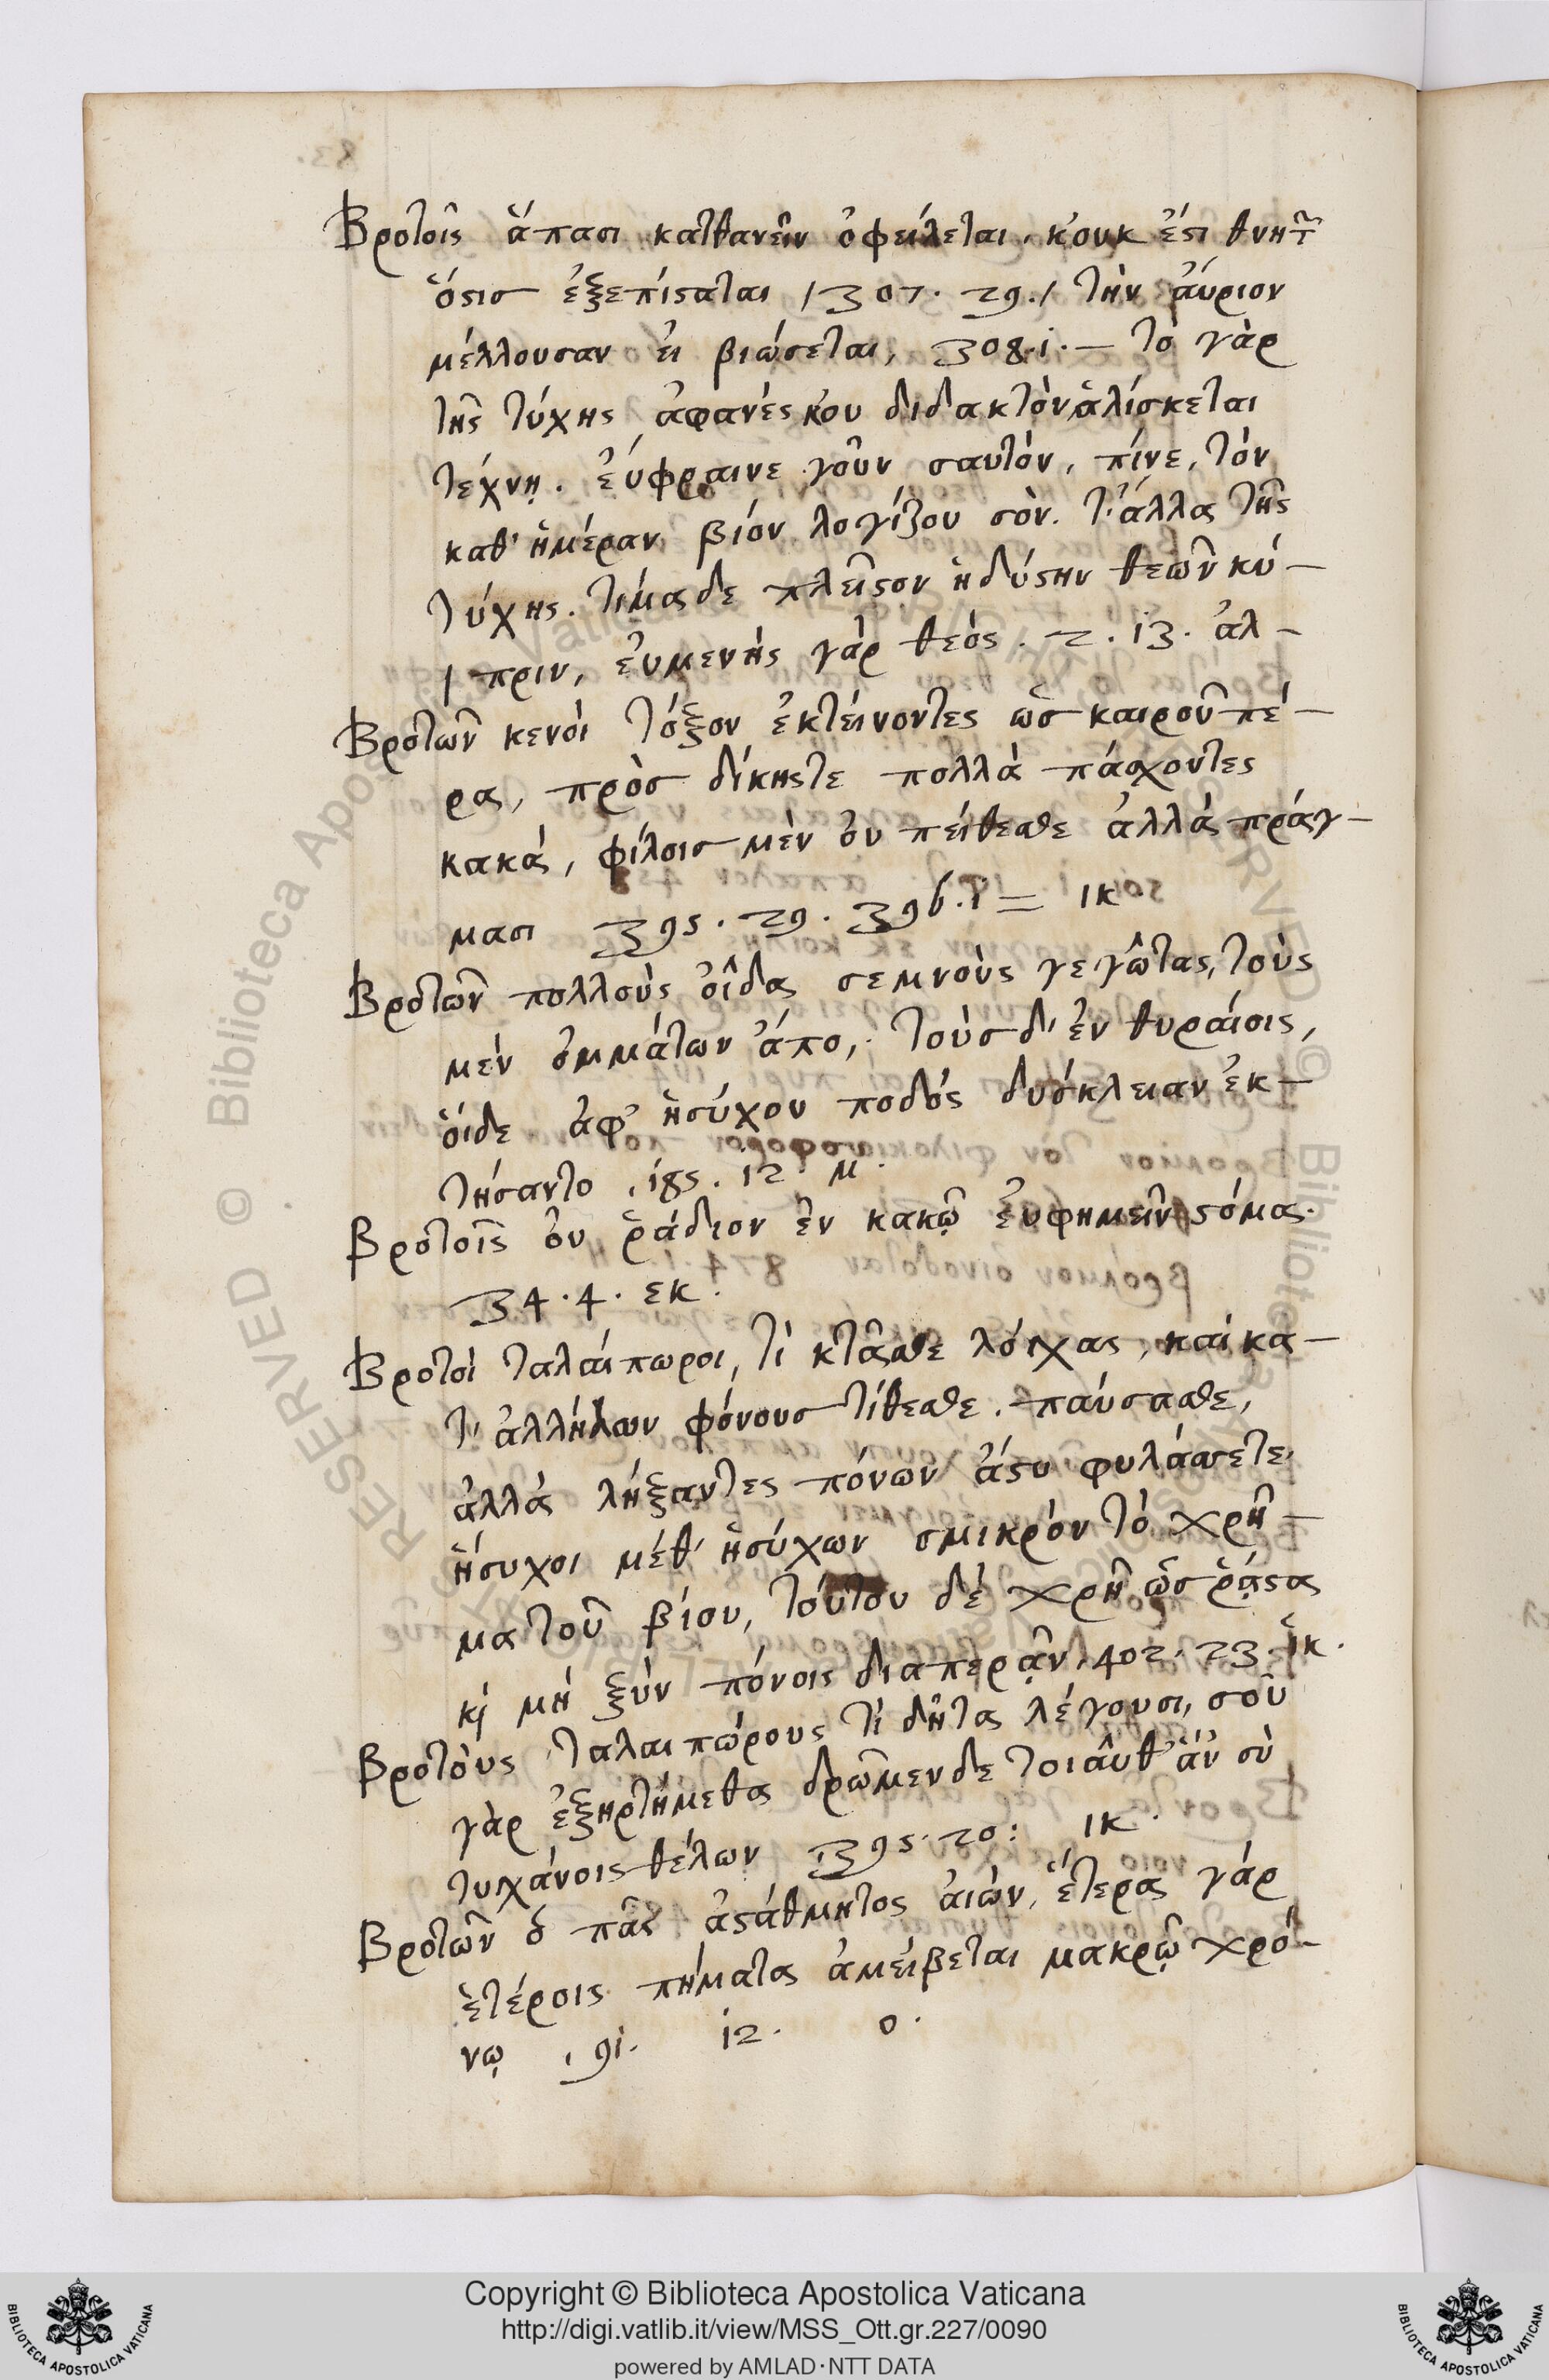 Βροτοῖς ἅπασι κατθανεῖν ὀφείλεται. κ'ουκ ἐστι θνητ͂
ὅστισ ἐξεπίσταται / 307. 29. / τὴν ἄυριον
μέλλουσαν ἐι βιώσεται, 308. i. — τὸ γὰρ
τῆς τύχης ἀφανές κ'ου διδακτὸν, ἁλίσκεται
τέχνῃ. ἐύφραινε γοῦν σαυτὸν, πίνε, τὸν
καθ' ἡμέραν βίον λογίζου σὸν. τ' ἄλλα τῆς
τύχης. τίμα δε πλεῖστον ἡδύστην θεῶν κύ-
/ πριν, ἐυμενὴς γὰρ θεός. 2. i3. ἀλ-
Βροτῶν κενοὶ τόξον ἐκτείνοντες ὡσ καιροῦ πέ-
ρα, πρὸσ δίκης τε πολλὰ πάσχοντες
κακά, φίλοισ μὲν ὀυ πείθεσθε ἀλλὰ πράγ-
μασι 395. 29. 396. i = ικ
Βροτῶν πολλοὺς ὀῖδα σεμνοὺς γεγῶτας, τοὺς
μὲν ὀμμάτων ἄπο, τοὺσ δ' ἐν θυραίοις,
ὁίδε ἀφ' ἡσύχου ποδὸς δυσκλειαν ἐκ-
τήσαντο. i85. i2. μ.
Βροτοῖς ὀυ ῥάδιον ἐν κακῷ ἐυφημεῖν στόμα.
34. 4. εκ.
Βροτοὶ ταλάιπωροι, τὶ κτᾶσθε λόγχας, καὶ κα-
τ' ἀλλήλων φόνουσ τίθεσθε. παύσασθε,
ἀλλὰ λήξαντες πόνων ἄστυ φυλάσσετε
ἥσυχοι μέθ' ἡσύχων σμικρὸν τὸ χρῆ-
μα τοῦ βίου, τόυτου δὲ χρῆ ὡσ ῥᾷστα
κὶ μὴ ξὺν πόνοις διαπερᾷν. 402. 23. ἵκ.
Βροτὸυς ταλαιπώρους τὶ δῆτα λέγουσι, σοῦ
γὰρ ἐξηρτήμεθα δρῶμεν δε τοιαῦθ' ἃν σὺ
τυγχάνοις θέλων 395. 20: ικ.
Βροτῶν ὁ πᾶς ἀστάθμητος ἀιών, ἕτερα γάρ
ἑτέροις πήματα ἀμείβεται μακρῷ χρό-
νῳ, 9i. i2. ο.
Copyright © Biblioteca Apostolica Vaticana
http://digi.vatlib.it/view/MSS_Ott.gr.227/0090
powered by AMLAD·NTT DATA